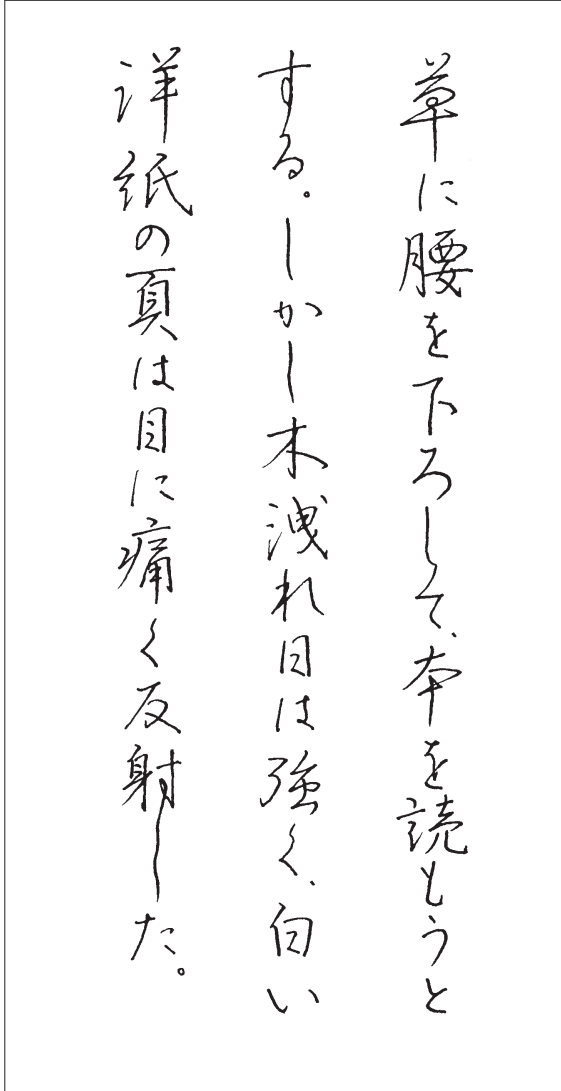 草に腰を下ろして、本を読もうと
する。しかし木洩れ日は強く、白い
洋紙の頁は目に痛く反射した。